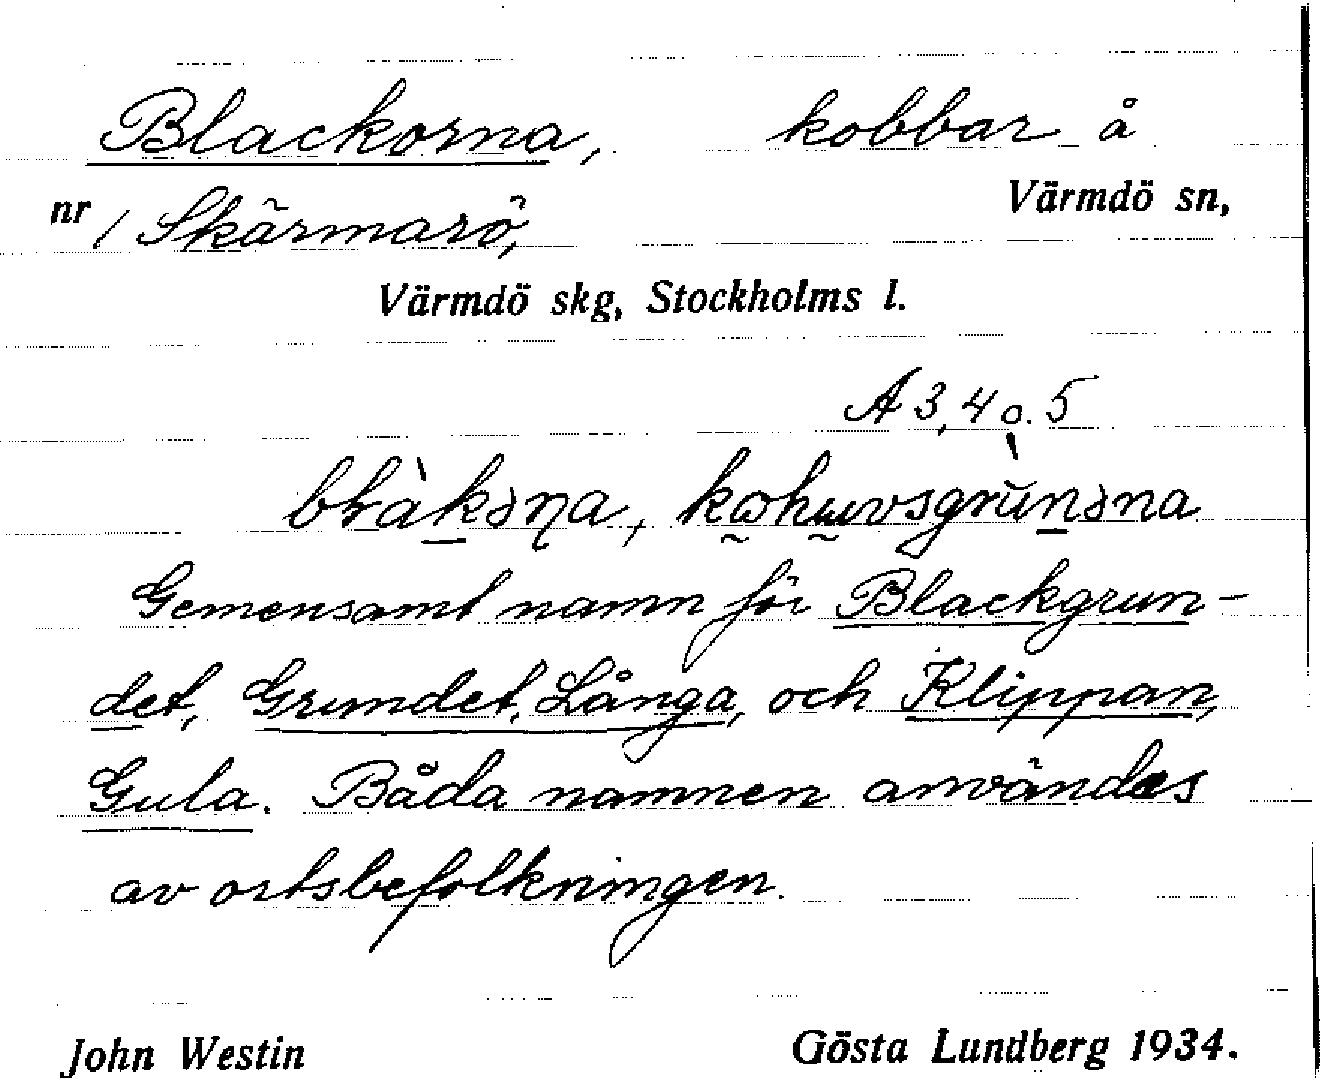 Blackorna, kobbar å
nr / Skärmarö, Värmdö sn,
Värmdö skg, Stockholms l.
A 3, 4 o. 5
Gemensamt namn för Blackgrun-
det, Grundet, Långa, och Klippan,
Gula. Båda namnen användes
av ortsbefolkningen.
John Westin Gösta Lundberg 1934.